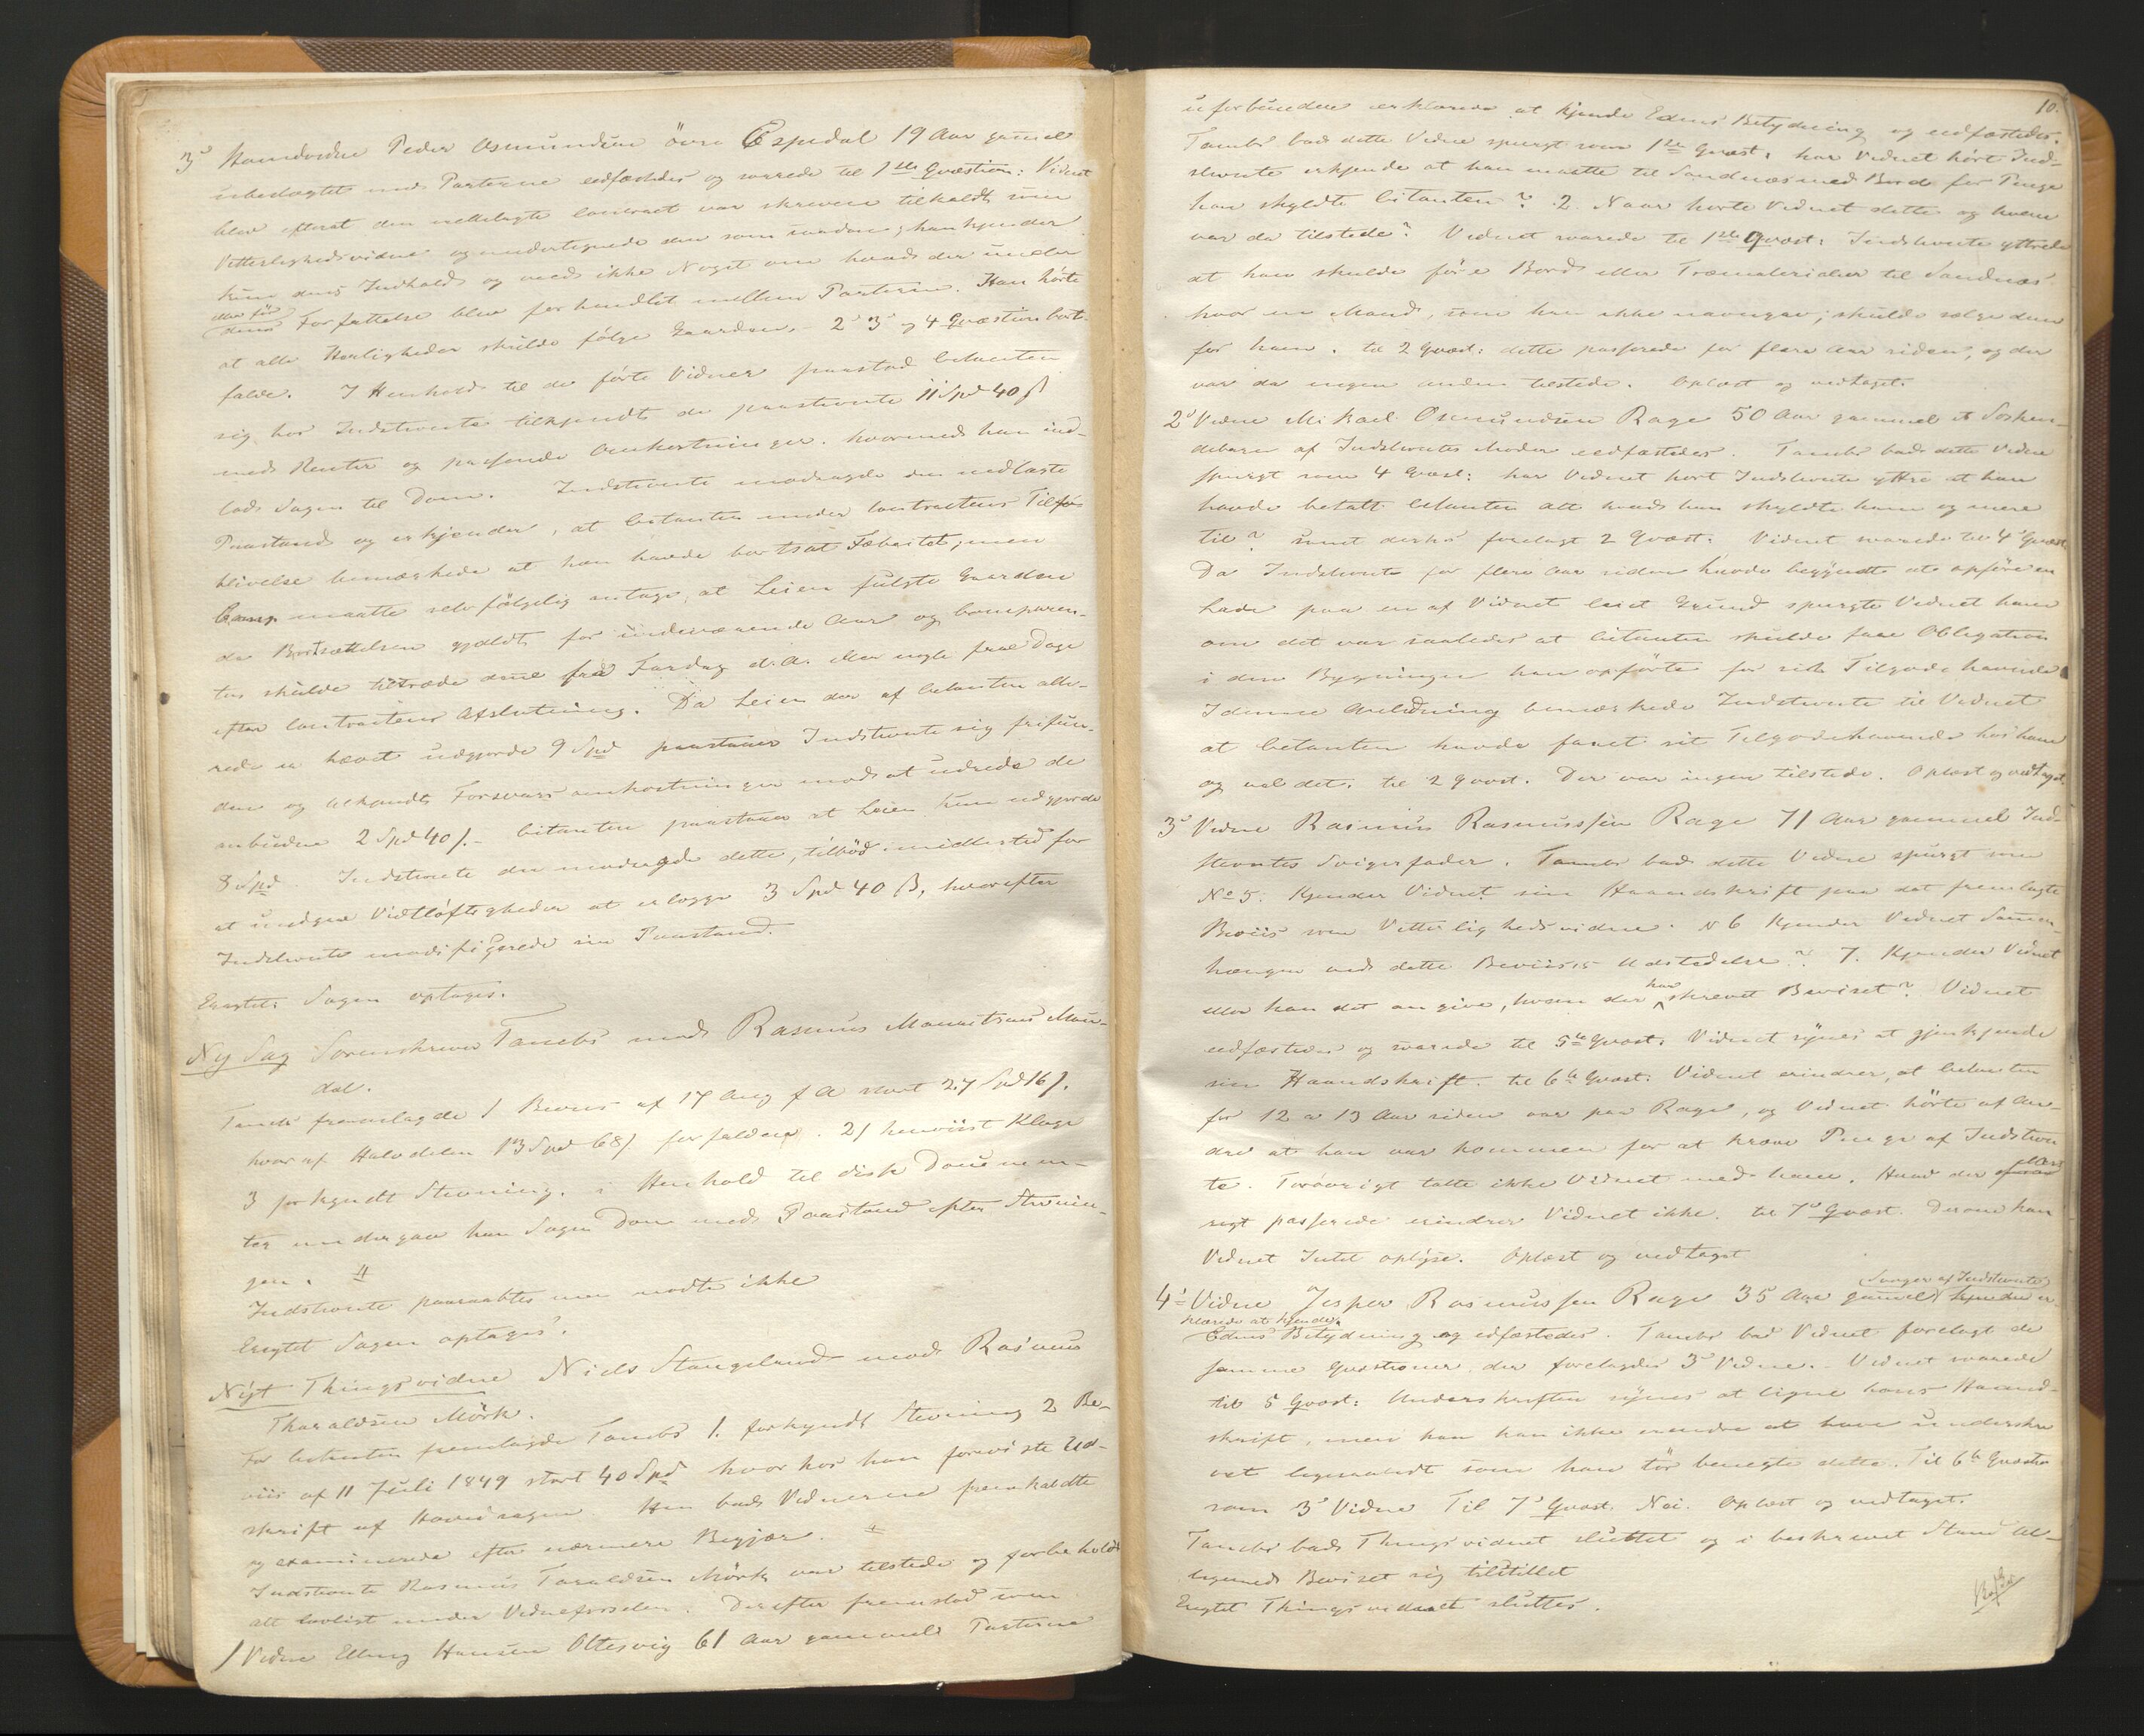 3d Peder Osmundsen övre Espedal 19 Aar gamel
ubeslægtet med Parterne eedfæstedes og svarede til 1ste Qvæstion: Vidnet
blev efterat den contract var skreven tilkaldt som
Vitterlighedsvidne og undertegnede den som saadan, han kjender
kun dens Indhold og veed ikke Noget om hvad der under
eller før
dens Forfattelse blev forhandlet mellem Parterne. Han hörte
at alle Herligheder skulde fölge Gaarden. 2d 3d og 4 Qvæstion bort-
falde. I Henhold til de förte Vidner paastod Citanten
sig hos Indstevnte tilkjendt de paastevnte 11 Spd 40 ß
med Renter og passende Omkostninger. hvormed han ind-
lod Sagen til Dom. Indstevnte modsagde den nedlagte
Paastand og erkjender, at Citanten under Contractens Tilfør-
blivelse bemærkede at han havde bortsat Fæbeitet; men
Comp. maatte selvfölgelig antage, at Leien fulgte Gaarden
da Bortsættelsen gjældt for indeværende Aar og Comparen-
ten skulde tiltræde den fra Fardag d.A. eller nogle faae Dage
efter Contractens Afslutning. Da Leien der af Citanten alle-
rede er hævet udgjorde 9 Spd paastaaer Indstevnte sig frifun-
den og tilkjendt Forsvarsomkostninger mod at udrede de
anbudne 2 Spd 40 ß. Citanten paastaaer at Leien kun udgjorde
8 Spd. Indstevnte der modsagde dette, tilböd imidlertid for
at undgaa Vidtlöftigheder at erlægge 3 Spd 40 ß, hvorefter
Indstevnte modifiserede sin Paastand.
Eragtet: Sagen optages.
Ny Sag Sorenskriver Tambs mod Rasmus Mauritzsen Mau-
dal.
Tambs fremlagde 1 Beviis af 17 Aug f A stort 27 Spd 16 ß.
hvoraf Halvdelen 13 Spd 68 ß forfalden. 2/ henviist Klage
3 forkyndt Stevning. i Henhold til disse Documen-
ter undergav han Sagen Dom med Paastand efter Stevnin-
gen.
Indstevnte paaraabtes men mødte ikke
Eragtet Sagen optages.
Nyt Thingsvidne Niels Stangeland mod Rasmus
Tharaldsen Mörk.
For Citanten fremlagde Tambs 1. forkyndt Stevning 2 Be-
viis af 11 Juli 1849 stort 40 Spd hvorhos han foreviste Ud-
skrift af Hovedsagen. Han bad Vidnerne fremkaldte
og examinerede efter nærmere Begjær.
Indstevnte Rasmus Taraldsen Mörk var tilstede og forbeholdt
alt lovligt under Vidneförselen. Derefter fremstod som
1 Vidne Elling Hansen Oltesvig 61 Aar gammel Parterne
10.
uforbunden erklærede at kjende Edens Betydning og eedfæstedes.
Tambs bad dette Vidne spurgt som 1ste Qvæst. har Vidnet hört Ind-
stevnte erkjende at han maatte til Sandnæs med Bord for Penge
han skyldte Citanten? 2. Naar hörte Vidnet dette og hvem
var da tilstede? Vidnet svarede til 1ste Qvæst: Indstevnte yttrede
at han skulde före Bord eller Træmaterialier til Sandnæs
hvor en Mand, som han ikke navngav, skulde sælge dem
for ham. til 2 Qvæst: dette passerede for flere Aar siden, og der
var da ingen anden tilstede. Oplæst og vedtaget.
2d Vidne Mikael Osmundsen Rage 50 Aar gammel et Södsken-
debarn af Indstevntes Moder eedfæstedes. Tambs bad dette Vidne
spurgt som 4 Qvæst: har Vidnet hört Indstevnte yttre at han
havde betalt Citanten alt hvad han skyldte ham og mere
til? samt derhos forelagt 2 Qvæst. Vidnet svarede til 4d Qvæst.
Da Indstevnte for flere Aar siden havde begyndt at opföre en
Lade paa en af Vidnet leiet Grund spurgte Vidnet ham
om det var saaledes at Citanten skulde faae Obligation
i den Bygninger han opförte for sit Tilgodehavende
I denne Anledning bemærkede Indstevnte til Vidnet
at Citanten havde faaet sit Tilgodehavende hos ham
og vel det. til 2 Qvæst. Der var ingen tilstede. Oplæst og vedtaget.
3d Vidne Rasmus Rasmussen Rage 71 Aar gammel Ind-
stevntes Svigerfader. Tambs bad dette Vidne spurgt som
No 5. Kjender Vidnet sin Haandskrift paa det fremlagte
Beviis som Vitterlighedsvidne. N 6 Kjender Vidnet Sammen-
hængen med dette Beviisis Udstedelse? 7. Kjender Vidnet
eller kan det angive, hvem der har skrevet Beviset? Vidnet
eedfæstedes og svarede til 5te Qvæst: Vidnet synes at gjenkjende
sin Haandskrift. til 6te Qvæst: Vidnet erindrer, at Citanten
for 12 a 13 Aar siden var paa Rage, og Vidnet hörte af An-
dre at han var kommen for at kræve Penge af Indstevn
te. Forövrigt talte ikke Vidnet med ham. Hvad der ellers
rigt passerede erindrer Vidnet ikke. til 7d Qvæst. Derom kan
Vidnet Intet oplyse. Oplæst og vedtaget
4d Vidne Jesper Rasmussen Rage 35 Aar gamel Svoger af Indstevnte er-
klærede at kjende
Edens Betydning og edfæstedes. Tambs bad Vidnet forelagt de
samme Qvæstioner der forelagdes 3d Vidne. Vidnet svarede
til 5 Qvæst: Underskriften synes at ligne hans Haand-
skrift, men han kan ikke erindre at have underskre
vet ligesaalidt som han tör benegte dette. Til 6te Qvæstion
som 3d Vidne Til 7d Qvæst. Nei. Oplæst og vedtaget.
Tambs bad Thingsvidnet sluttet og i beskrevet Stand til-
ligemed Beviset sig tilstillet
Eragtet Thingsvidnet sluttes.